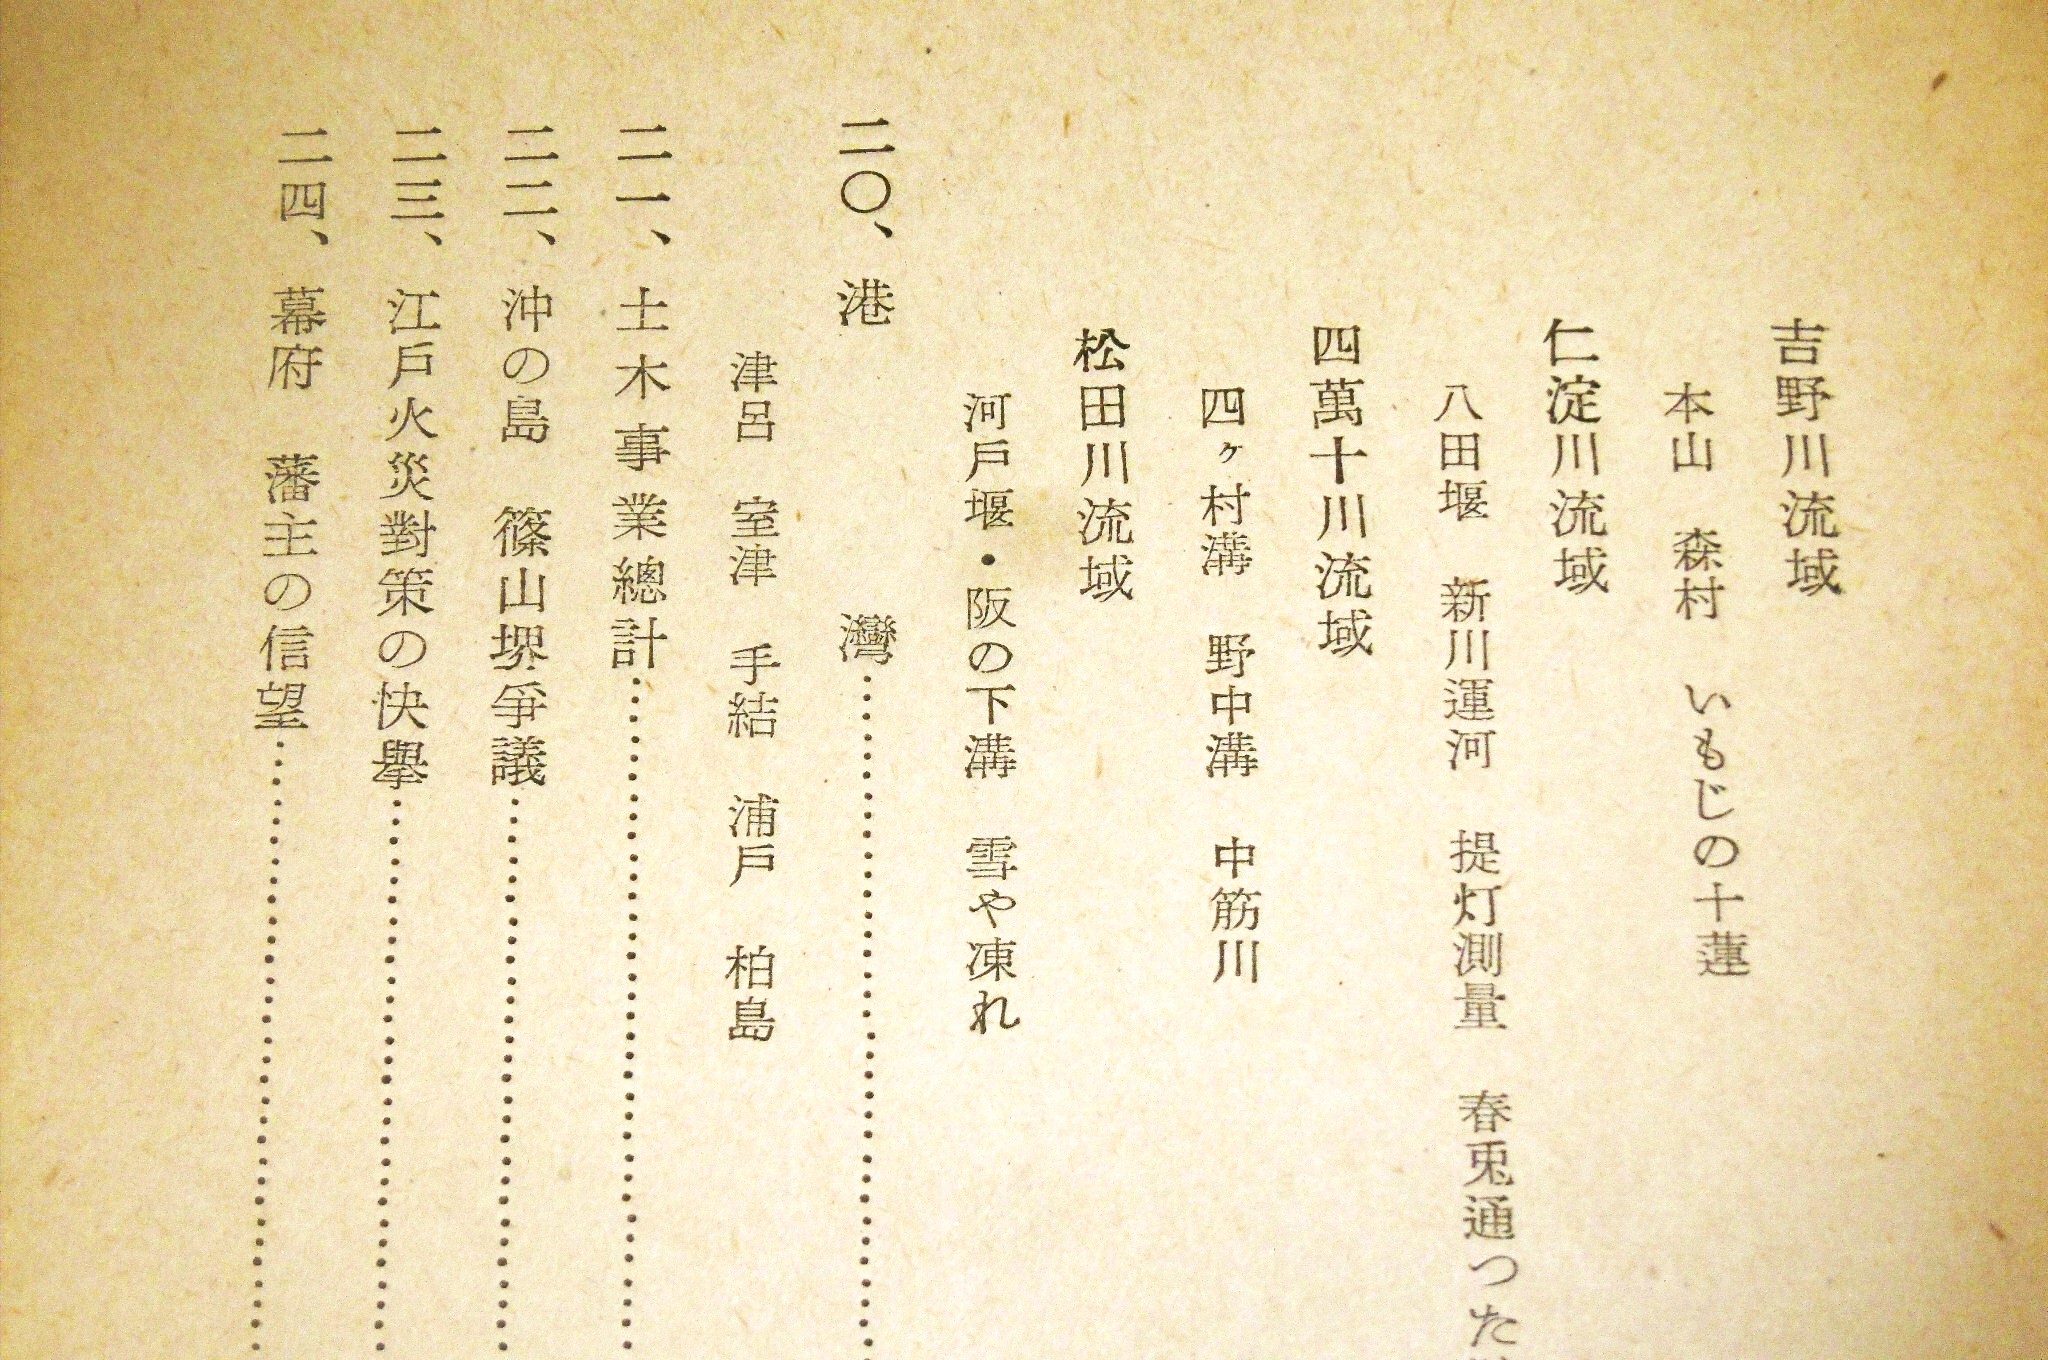 吉野川流域
本山　森村　いもじの十蓮
仁淀川流域
八田堰　新川運河　提灯測量　春兎通つた
四萬十川流域
四ヶ村溝　野中溝　中筋川
松田川流域
河戸堰・阪の下溝　雪や凍れ
二〇、港　灣……………………
津呂　室津　手結　浦戸　柏島
二一、土木事業總計……………………
二二、沖の島　篠山堺爭議……………………
二三、江戸火災對策の快擧……………………
二四、幕府　藩主の信望……………………